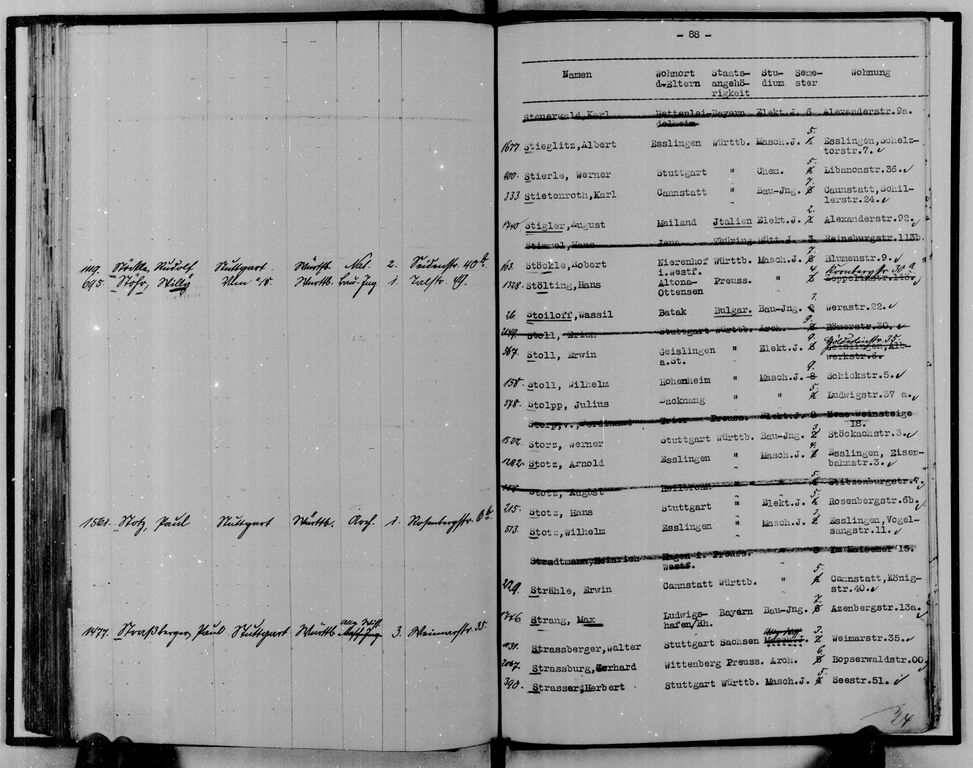 1119. Stöckle, Rudolf Stuttgart Württb. Nat. 2. Seidenstr. 40b.
695. Stöhr, Willy Ulm a/D. Württb. Bau-Jng 1.
1561. Stotz, Paul Stuttgart Württb. Arch. 1. Rosenbergstr. 6b.
1477. Straßberger, Paul Stuttgart Württb. 3. Weimarstr. 35.
- 88 -
Namen Wohnort Staats- Stu- Seme- Wohnung
d.Eltern angehö- dium ster
rigkeit
Steuerwald, Karl Hettenlei- Bayern Elekt.J. 6 Alexanderstr.9a.
delheim
1677. Stieglitz, Albert Esslingen Württb. Masch.J. 5. Esslingen, Schelz-
torstr.7.
400. Stierle, Werner Stuttgart " Chem. 5. Libanonstr.36.
333. Stietenroth, Karl Cannstatt " Bau-Jng. 7. Cannstatt, Schil-
lerstr.24.
1740. Stigler, August Mailand Jtalien Elekt.J. 2. Alexanderstr.92.
Stimpel, Hans Jena Thüring. Hütt.J. 3 Reinsburgstr.113b
163. Stöckle, Robert Nierenhof Württb. Masch.J. 7. Blumenstr.9.
i.Westf.
1328. Stölting, Hans Altona- Preuss. " Kronbergstr. 30.
Ottensen
26. Stoiloff, Wassil Batak Bulgar. Bau-Jng. 7. Werastr.22.
2149. Stoll, Erich Stuttgart Württb. Arch. 9. Römerstr.30.
567. Stoll, Erwin Geislingen " Elekt.J. 9. Hölderlinstr. 35.
a.St. werkstr.6.
158. Stoll, Wilhelm Hohenheim " Masch.J. 8 9. Schickstr.5.
578. Stolpp, Julius Backnang " " 5. Ludwigstr.37 a.
Storp, v., Ferdinand Trier Preuss. Elekt.J. 9 Neue Weinsteige
18.
1522. Storz, Werner Stuttgart Württb. Bau-Jng. 3. Stöckachstr.3.
1282. Stotz, Arnold Esslingen " Masch.J. 4. Esslingen, Eiser-
bahnstr.3.
Stotz, August Heilbronn " " 5. Stitzenburgstr.
215. Stotz, Hans Stuttgart " Elekt.J. 5. Rosenbergstr.6b.
513. Stotz, Wilhelm Esslingen " Masch.J. 3. Esslingen, Vogel-
sangstr.11.
Stradtmann, Heinrich Hagen i. Preuss. " 8 Im Kaisemer 15.
Westf.
229. Strähle, Erwin Cannstatt Württb. " 5. Cannstatt, König-
str.40.
1746 Strang, Max Ludwigs- Bayern Bau-Jng. 7. Azenbergstr.13a.
hafen/Rh.
Strassberger, Walter Stuttgart Sachsen Masch.J. 3. Weimarstr.35.
2067. Strassburg, Gerhard Wittenberg Preuss. Arch. 6. Bopserwaldstr.00
390. Strasser, Herbert Stuttgart Württb. Masch.J. 5. Seestr.51.